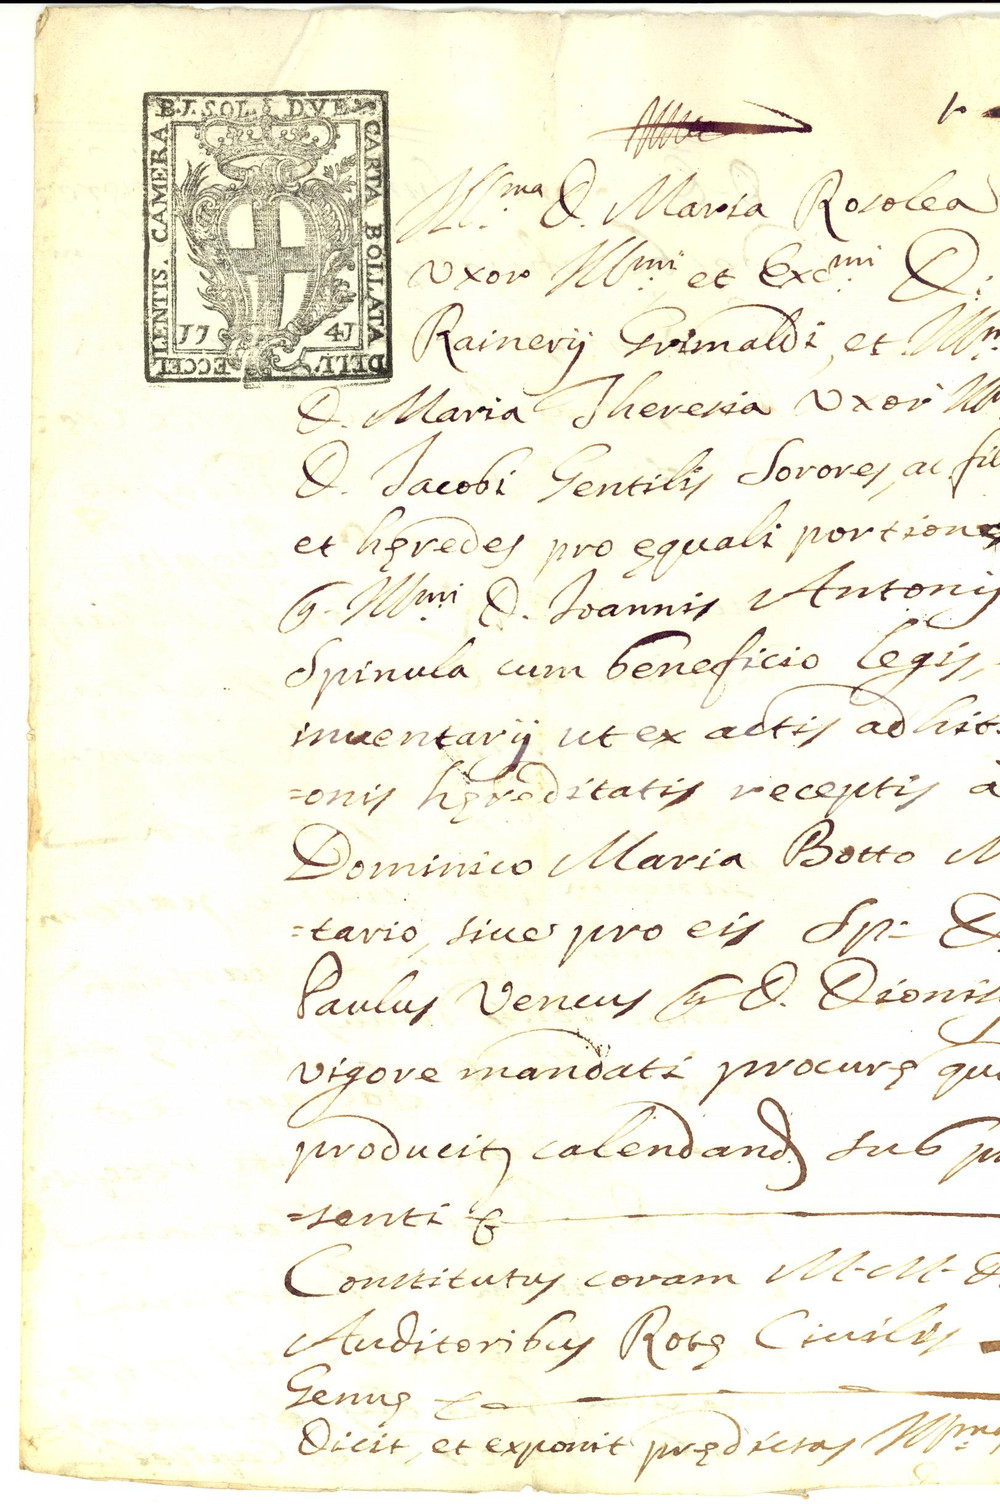 CARTA BOLLATA DELL' ECCELLENTIS. CAMERA
P.I. SOL. DVE
1741
Ill.ma D. Maria Rosolea
Uxor Ill.mi et Exc.mi D:
Rainerij Grimaldi, et Ill.m
D. Maria Theresia Uxor Ill
D. Jacobi Gentilis Sorores, ac fil
et hęredes pro ęquali portione
q. Ill.mi D. Joannis Antonij
Spinula cum beneficio legis,
inventarij ut ex actis adhiti
=onis hęreditatis receptis à
Dominico Maria Botto N
=tario, sive pro eis Sp: D.
Paulus Veneus q. D. Dionis
vigore mandati procurę quo
producit, calendand sub prę
=senti &
Constitutus coram M. M. D.
Auditoribus Rotę Civilis
Genuę &
Dicit, et exponit prędictas Ill.mas